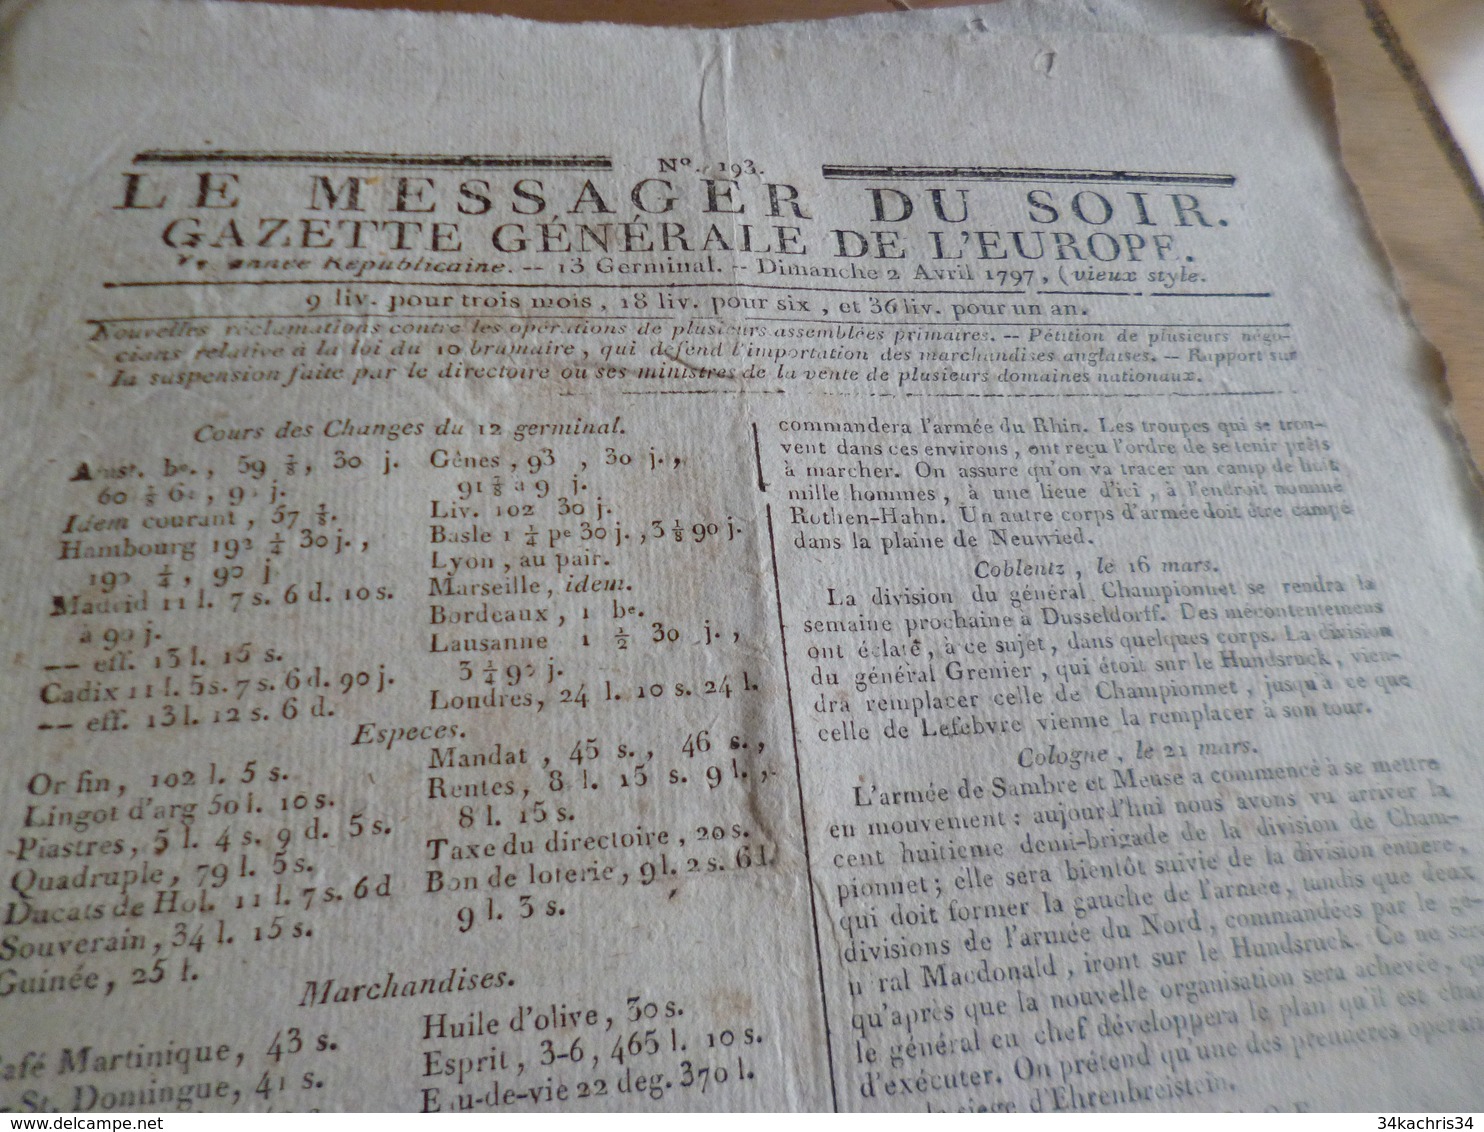 N°. 193.
LE MESSAGER DU SOIR.
GAZETTE GÉNÉRALE DE L'EUROPE.
Ve année Républicaine. -- 13 Germinal. -- Dimanche 2 Avril 1797, (vieux style.
9 liv. pour trois mois, 18 liv. pour six, et 36 liv. pour un an.
Nouvelles réclamations contre les opérations de plusieurs assemblées primaires. -- Pétition de plusieurs négo-
cians relative à la loi du 10 brumaire, qui défend l'importation des marchandises anglaises. -- Rapport sur
la suspension faite par le directoire ou ses ministres de la vente de plusieurs domaines nationaux.
Cours des Changes du 12 germinal.
Amst. be., 59 1/8, 30 j.
60 6, 9 j.
Idem courant, 57 1/8.
Hambourg 192 1/4 30 j.,
190 1/4, 90 j
Madrid 11 l. 7 s. 6 d. 10 s.
à 90 j.
-- eff. 13 l. 15 s.
Cadix 11 l. 5 s. 7 s. 6 d. 90 j.
-- eff. 13 l. 12 s. 6 d.
Gênes, 93, 30 j.,
91 à 9 j.
Liv. 102 30 j.
Basle 1 1/4 pe 30 j., 3 1/8 90 j.
Lyon, au pair.
Marseille, idem.
Bordeaux, 1 be.
Lausanne 1 1/2 30 j.,
3 1/4 90 j.
Londres, 24 l. 10 s. 24 l.
Especes.
Or fin, 102 l. 5 s.
Lingot d'arg 50 l. 10 s.
Piastres, 5 l. 4 s. 9 d. 5 s.
Quadruple, 79 l. 5 s.
Ducats de Hol. 11 l. 7 s. 6 d
Souverain, 34 l. 15 s.
Guinée, 25 l.
Mandat, 45 s., 46 s.,
Rentes, 8 l. 15 s. 9 l.,
8 l. 15 s.
Taxe du directoire, 20 s.
Bon de loterie, 9 l. 2 s. 6 d.
9 l. 3 s.
Marchandises.
Café Martinique, 43 s.
-St. Domingue, 41 s.
Huile d'olive, 30 s.
Esprit, 3-6, 465 l. 10 s.
Eau-de-vie 22 deg. 370 l.
commandera l'armée du Rhin. Les troupes qui se trou-
vent dans ces environs, ont reçu l'ordre de se tenir prêts
à marcher. On assure qu'on va tracer un camp de huit
mille hommes, à une lieue d'ici, à l'endroit nommé
Rothen-Hahn. Un autre corps d'armée doit être campé
dans la plaine de Neuwied.
Coblentz, le 16 mars.
La division du général Championnet se rendra la
semaine prochaine à Dusseldorff. Des mécontentemens
ont éclaté, à ce sujet, dans quelques corps. La division
du général Grenier, qui étoit sur le Hundsruck, vien-
dra remplacer celle de Championnet, jusqu'à ce que
celle de Lefebvre vienne la remplacer à son tour.
Cologne, le 21 mars.
L'armée de Sambre et Meuse a commencé à se mettre
en mouvement : aujourd'hui nous avons vu arriver la
cent huitieme demi-brigade de la division de Cham-
pionnet; elle sera bientôt suivie de la division entiere,
qui doit former la gauche de l'armée, tandis que deux
divisions de l'armée du Nord, commandées par le gé-
n ral Macdonald, iront sur le Hundsruck. Ce ne sera
qu'après que la nouvelle organisation sera achevée, qu
le général en chef développera le plan qu'il est cha
d'exécuter. On prétend qu'une des premieres opérat
le siege d'Ehrenbreistein.
34kachris34